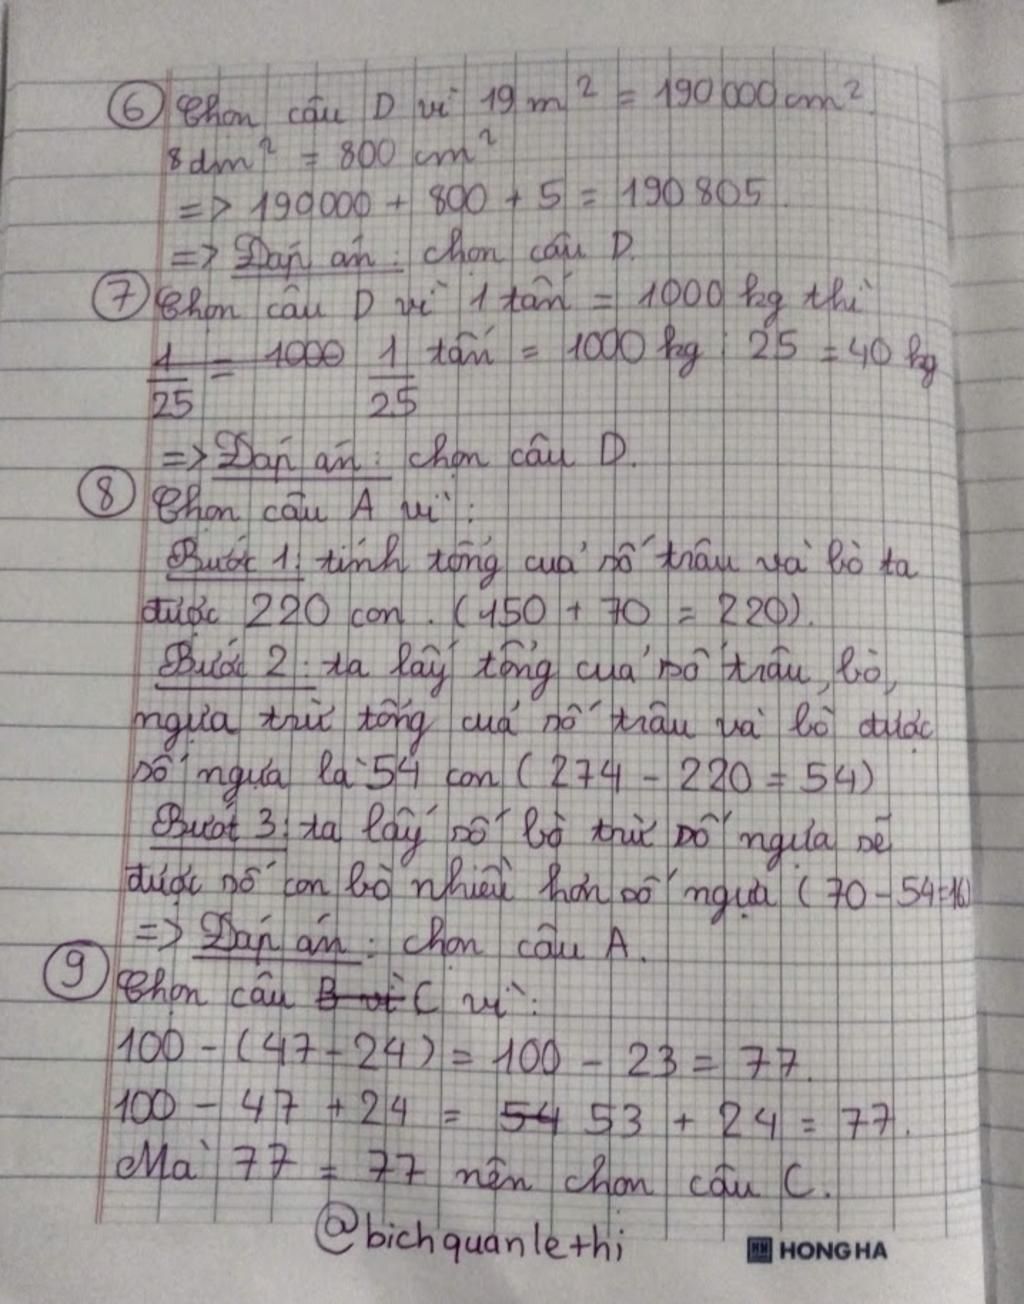 ⑥ Chọn câu D vì 19 m² = 190 000 cm²
8 dm² = 800 cm²
=> 190 000 + 800 + 5 = 190 805.
=> Đáp án: chọn câu D.
⑦ Chọn câu D vì 1 tấn = 1000 kg thì
1/25 = 1000 1/25 tấn = 1000 kg : 25 = 40 kg
=> Đáp án: chọn câu D.
⑧ Chọn câu A vì:
Bước 1: tính tổng của số trâu và bò ta
được 220 con. (150 + 70 = 220).
Bước 2: ta lấy tổng của số trâu, bò,
ngựa trừ tổng của số trâu và bò được
số ngựa là 54 con (274 - 220 = 54)
Bước 3: ta lấy số bò trừ số ngựa sẽ
được số con bò nhiều hơn số ngựa (70 - 54 = 16)
=> Đáp án: chọn câu A.
⑨ Chọn câu B vì C vì:
100 - (47 - 24) = 100 - 23 = 77.
100 - 47 + 24 = 54 53 + 24 = 77.
Mà 77 = 77 nên chọn câu C.
@bichquanlethi
HONG HA